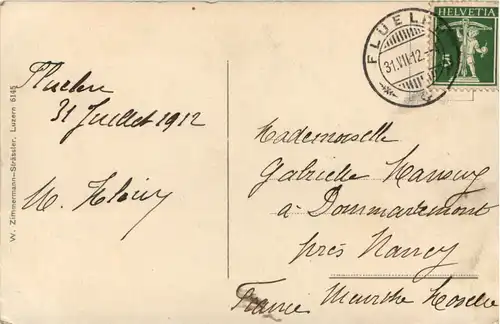 HELVETIA
5
FLUELEN
31.VII.12.
W. Zimmermann-Strässler, Luzern
Fluelen
31 Juillet 1912
Mademoiselle
Gabrielle
à Dommartemont
près Nancy
France Meurthe Moselle